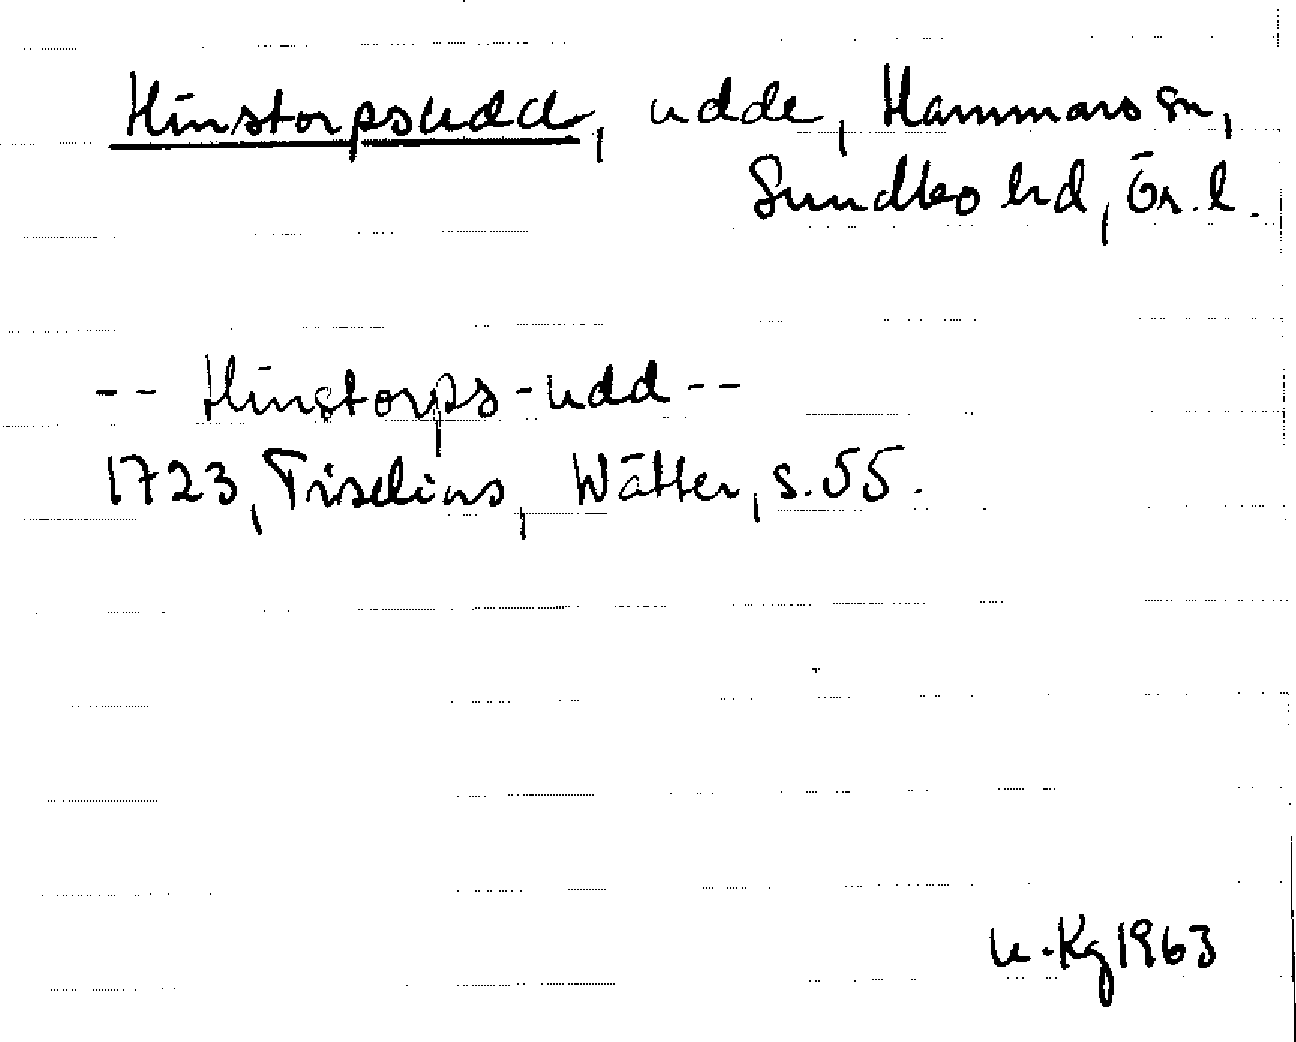 Hinstorpsudd, udde, Hammars sn,
Sundbo hd, Ör. l.
-- Hinstorps-udd --
1723, Tiselius, Wätter, s. 55.
u. Kg 1963